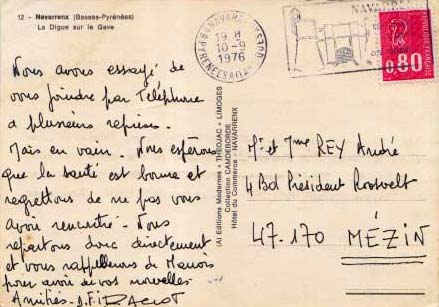 12 - Navarrenx (Basses-Pyrénées)
La Digue sur le Gave
Nous avons essayé de
vous joindre par Téléphone
a plusieurs reprises.
Mais en vain. Nous espérons
que la santé est bonne et
regrettons de ne pas vous
avoir rencontré. Nous
repartons donc directement
et vous rappellerons de
pour avoir de vos nouvelles
Amitiés.
(A) Editions Modernes • THEOJAC • LIMOGES
Collection CAMDEBORDE
Hôtel du Commerce - NAVARRENX
19 H
10-9
1976
NAVARRENX
0,80
Mr et Mme REY André
4 Bd Président Roosvelt
47.170 MÉZIN